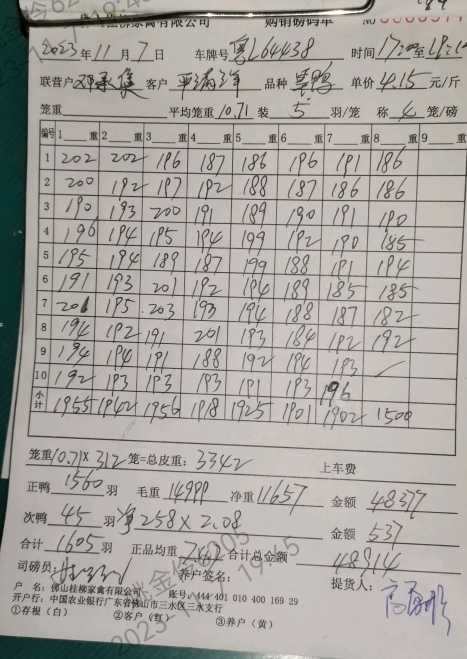 佛山桂柳家禽有限公司 购销磅码单 No
2023年11月7日 车牌号粤L64438 时间17:20至19:10
联营户 客户 品种 单价4.15元/斤
笼重 平均笼重10.71 装5羽/笼 称4笼/磅
编号 1 重 2 重 3 重 4 重 5 重 6 重 7 重 8 重 9 重
1 202 202 196 187 186 196 191 186
2 200 192 197 192 188 187 186 186
3 190 193 200 191 189 190 191 190
4 196 194 195 194 199 192 190 185
5 195 194 189 187 199 188 191 194
6 191 193 201 192 194 189 185 185
7 201 195 203 193 194 188 187 182
8 194 192 191 201 193 184 192 192
9 194 194 191 188 192 194 193
10 192 193 193 193 191 193 196
小计 1955 1942 1956 1918 1925 1901 1902 1500
笼重10.71×312笼=总皮重:3342 上车费
正鸭1560羽 毛重14999 净重11657 金额48377
次鸭45羽 净258×2.08 金额537
合计1605羽 正品均重7.47 合计总金额48914
司磅员: 养户签名: 提货人:
户 名:佛山桂柳家禽有限公司 账号:444 401 010 400 169 29
开户行:中国农业银行广东省佛山市三水区三水支行
①存根(白) ②客户(红) ③养户(黄)